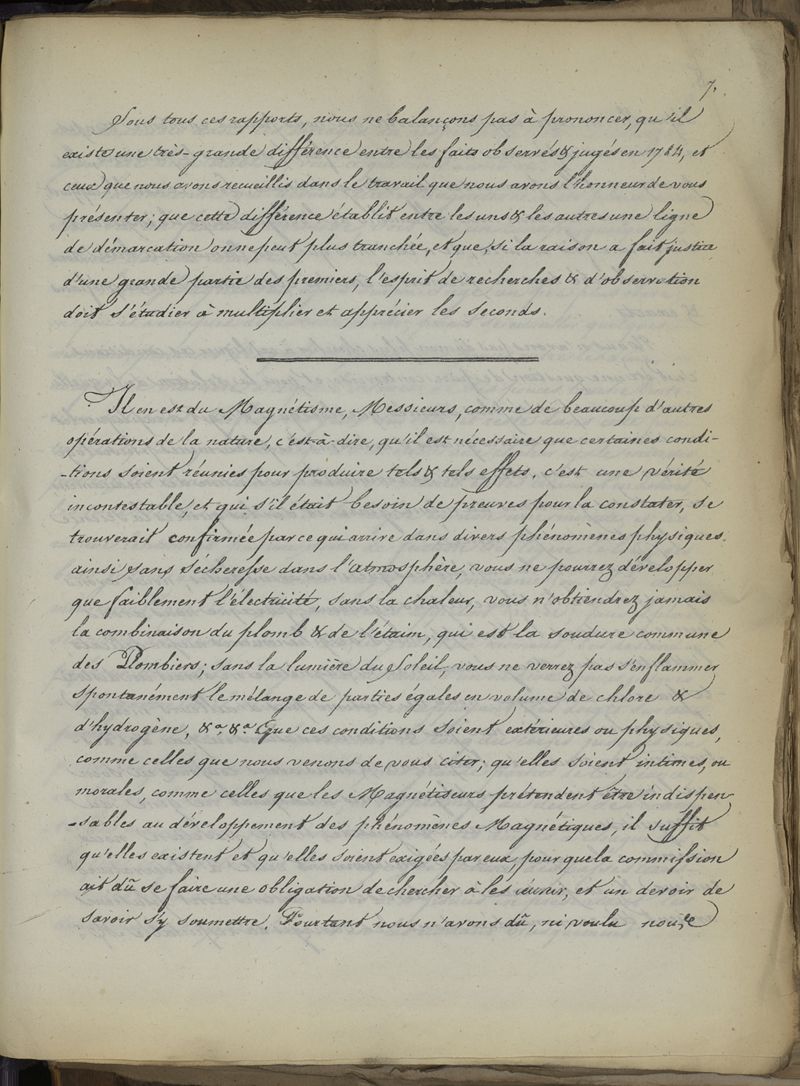 7.
Sous tous ces rapports, nous ne balançons pas à prononcer, qu'il
existe une très-grande différence entre les faits observés & jugés en 1784, et
ceux que nous avons recueillis dans le travail que nous avons l'honneur de vous
présenter; que cette différence établit entre les uns & les autres une ligne
de démarcation on ne peut plus tranchée, et que, si la raison a fait justice
d'une grande partie des premiers, l'esprit de recherches & d'observation
doit s'étudier à multiplier et apprécier les seconds.
Il en est du Magnétisme, Messieurs, comme de beaucoup d'autres
opérations de la nature, c'est-à-dire, qu'il est nécessaire que certaines condi-
-tions soient réunies pour produire tels & tels effets. c'est une vérité
incontestable, et qui s'il était besoin de preuves pour la constater, se
trouverait confirmée par ce qui arrive dans divers phénomènes physiques.
ainsi sans sécheresse dans l'atmosphère, vous ne pourrez développer
que faiblement l'électricité, sans la chaleur, vous n'obtiendrez jamais
la combinaison du plomb & de l'étain, qui est la soudure commune
des Plombiers; sans la lumière du Soleil, vous ne verrez pas s'enflammer
spontanément le mélange de parties égales en volume de chlore &
d'hydrogène, &a. &a. Que ces conditions soient extérieures ou physiques,
comme celles que nous venons de vous citer; qu'elles soient intimes, ou
morales, comme celles que les Magnétiseurs prétendent être indispen-
-sables au développement des phénomènes Magnétiques, il suffit
qu'elles existent et qu'elles soient exigées par eux, pour que la commission
ait dû se faire une obligation de chercher à les réunir, et un devoir de
savoir s'y soumettre. Pourtant nous n'avons dû, ni voulu nous